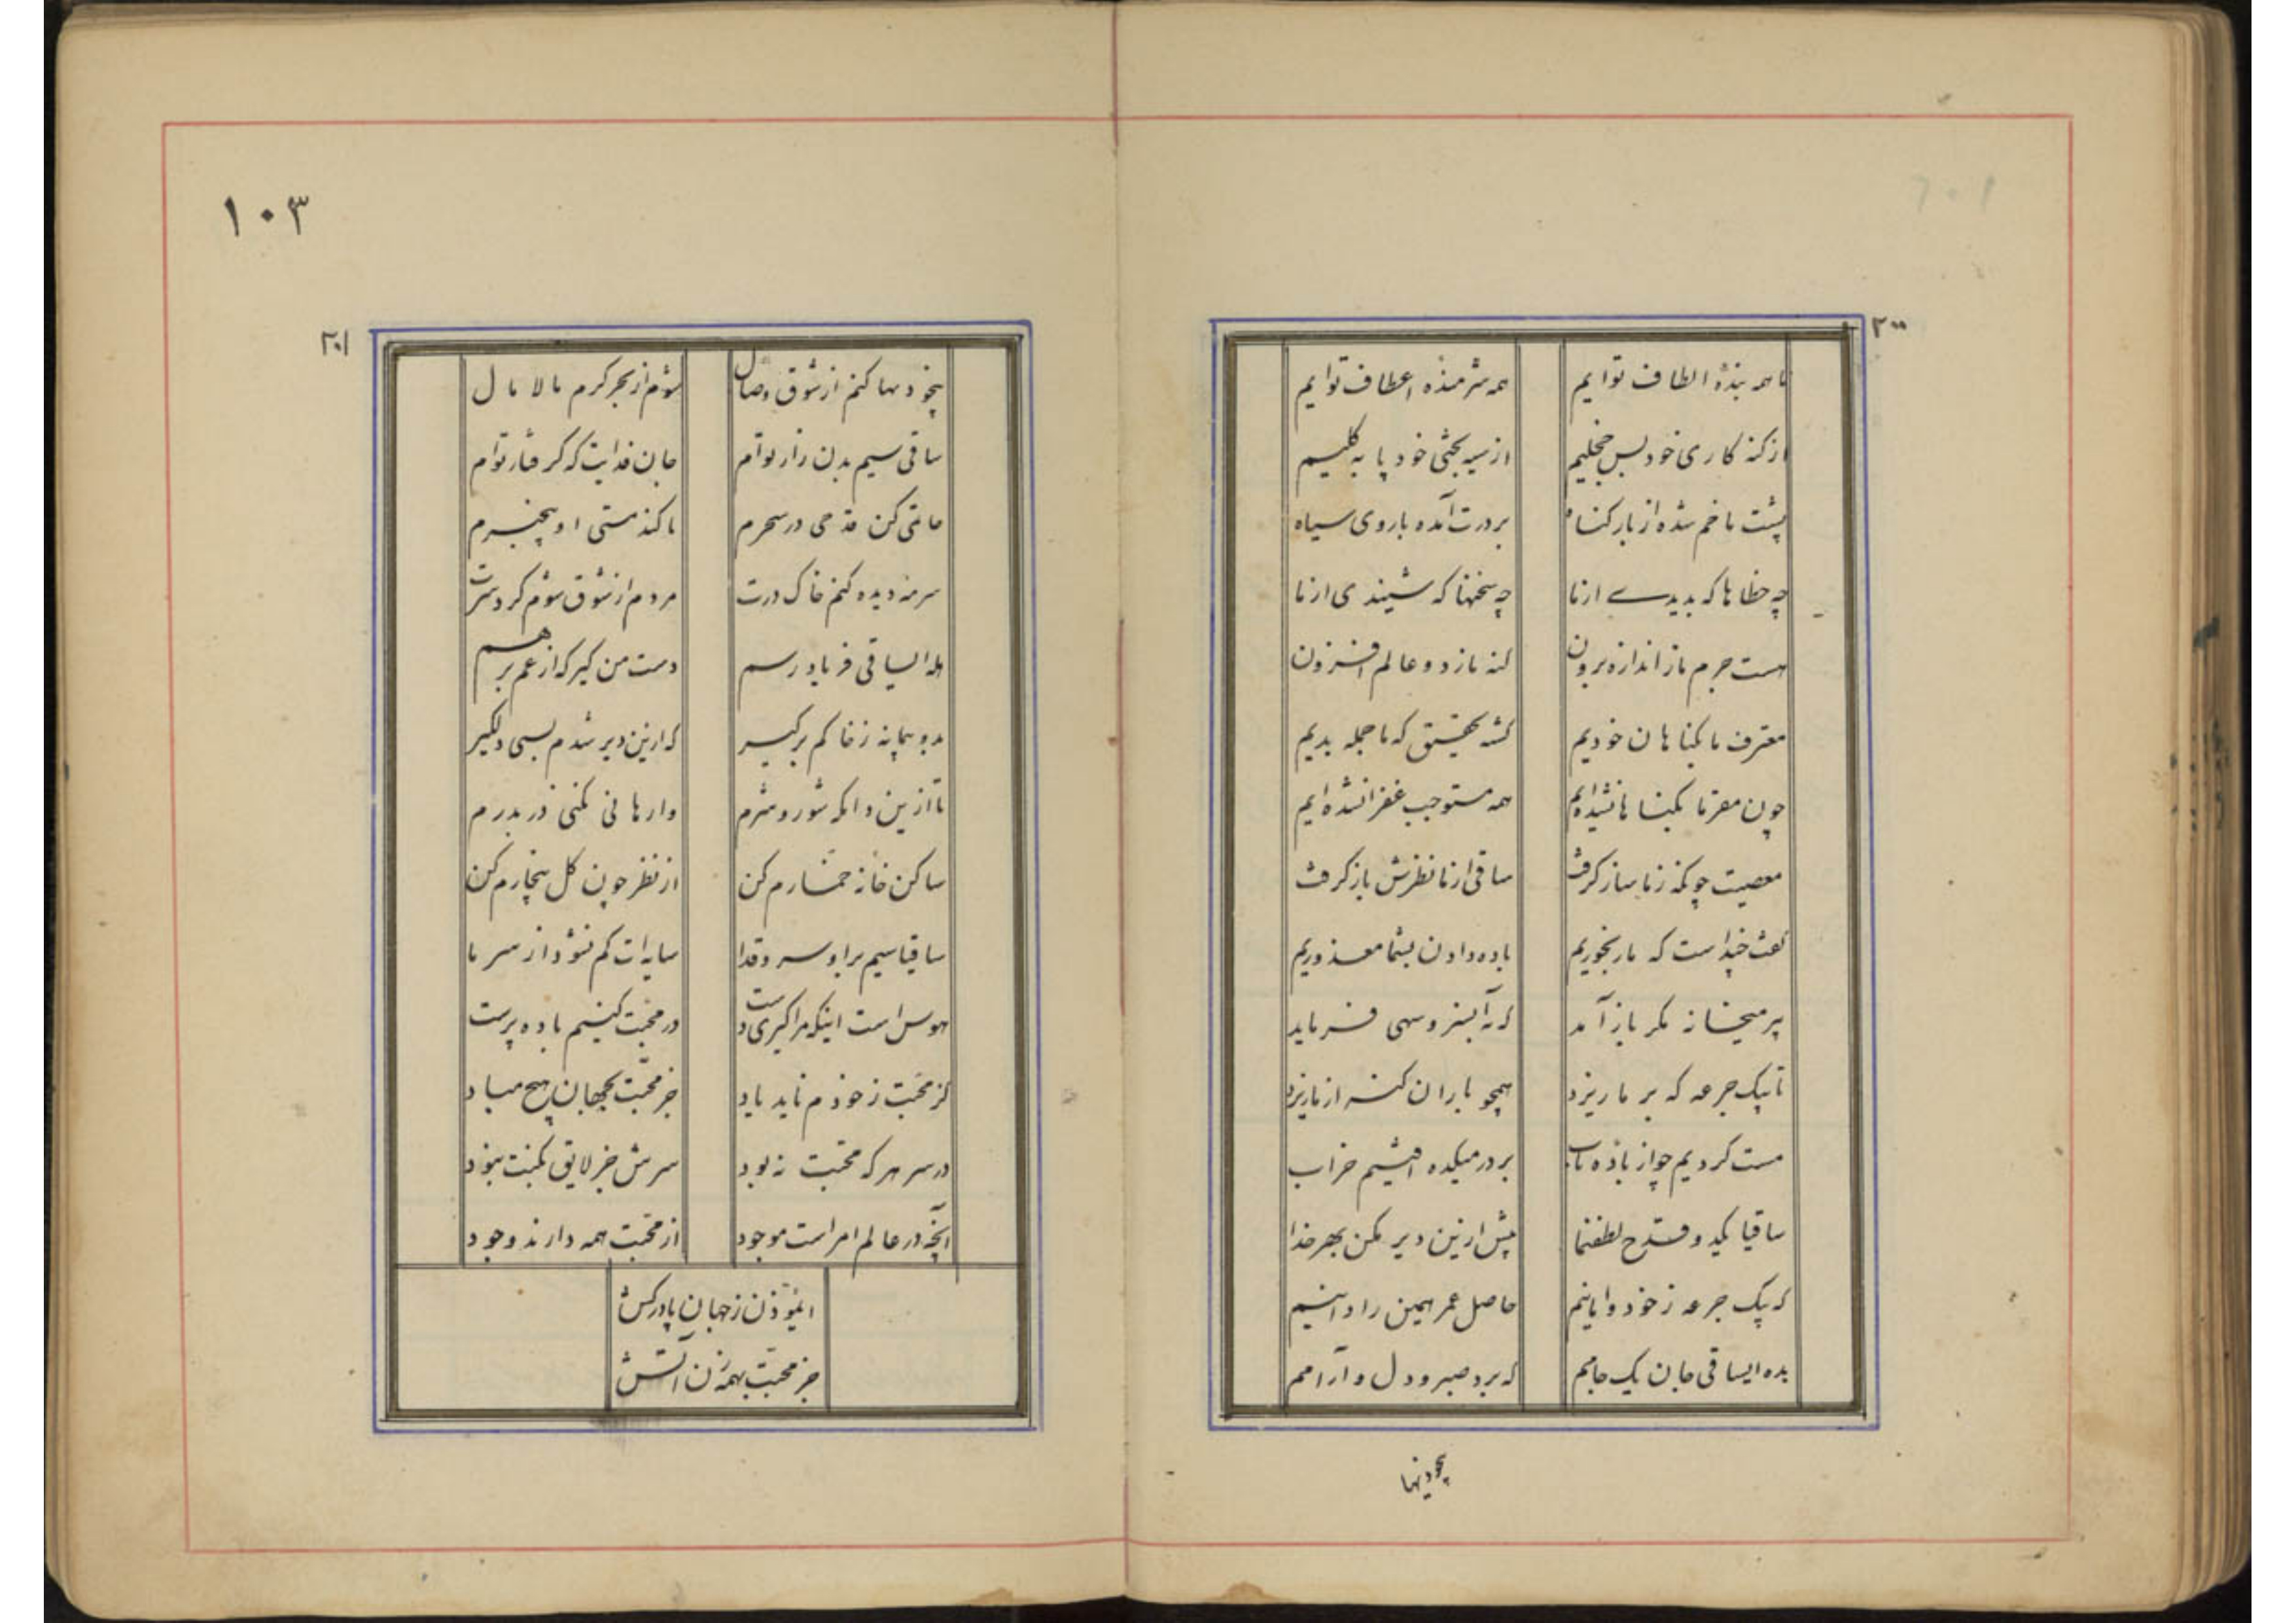 ۲۰۰
ما همه بندهٔ الطاف توایم همه شرمنده اعطاف توایم
از کنه کاری خود بس خجلیم از سیه بختی خود پا به کلیم
پشت ما خم شده از بار کناه بر درت آمده با روی سیاه
چه خطاها که بدیدے از ما چه سخنها که شنیدی از ما
هست جرم ما ز اندازه برون کنه ما ز دو عالم افزون
معترف ما بکناهان خودیم کشته تحقیق که ما جمله بدیم
چون مقر ما بکناهان شده‌ایم همه مستوجب غفران شده‌ایم
معصیت چونکه ز ما ساز کرفت ساقی از ما نظرش باز کرفت
کفت چند است که ما رنجوریم باده دادن بشما معذوریم
پیر میخانه مکر باز آمد که به آبسرو سهی فرماید
تا یک جرعه که بر ما ریزد همچو باران کنه از ما ریزد
مست کردیم چو از باده ناب بر در میکده افتیم خراب
ساقیا یکدو قدح لطف نما بیش ازین دیر مکن بهر خدا
که یک جرعه ز خود وا مانیم حاصل عمر همین را دانیم
بده ایساقی جان یک جامم که برد صبر و دل و آرامم
بیخودیها
۱۰۳
۲۰۱
بیخودیها کنم از شوق وصال شوم از بحر کرم مالامال
ساقی سیم بدن زار توام جان فدایت که کرفتار توام
حاتمی کن قدحی در سحرم تا کند مستی او بیخبرم
سرمه دیده کنم خاک درت هر دم از شوق شوم کرد سرت
هله ایساقی فریاد رسم دست من کیر که از غم برهم
بدو پیمانه ز خاکم برکیر که ازین دیر شدم بسی دلکیر
تا ازین دامکه شور و شرم وارهانی نکنی در بدرم
ساکن خانه خمارم کن از نظر چون کل بیخارم کن
ساقیا سیم برا و سرو قدا سایه‌ات کم نشود از سر ما
هوس است اینکه مرا کیری دست در محبت کنیم باده پرست
کز محبت ز خودم ناید یاد جز محبّت بجهان هیچ مباد
در سر هر که محبّت نه بود سرش جز لایق نکبت نبود
آنچه در عالم امر است موجود از محبّت همه دارند وجود
ایمؤذن ز جهان پا درکش
جز محبّت بهمه زن آتش